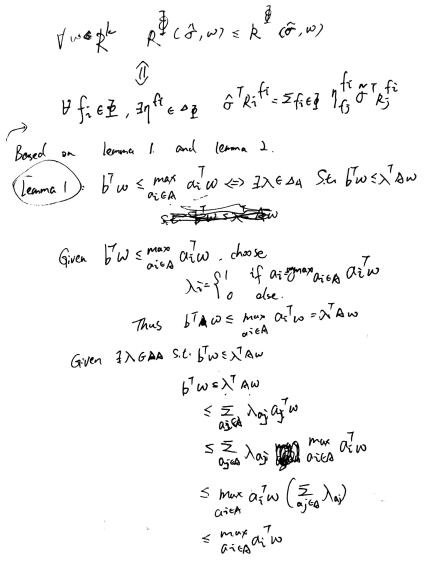 ∀ w ∈ ℝᵏ R^Φ(σ̂, w) ≤ R^Φ(σ̂, w)
⇕
∀ f_i ∈ Φ, ∃η^{f_i} ∈ Δ_Φ σ̂ᵀR_i^{f_i} = Σ_{f_i∈Φ} η_{f_j}^{f_i} σ̃ᵀR_j^{f_i}
Based on lemma 1. and lemma 2.
Lemma 1: bᵀw ≤ max_{a_i∈A} a_iᵀw ⇔ ∃λ∈Δ_A S.t. bᵀw ≤ λᵀAw
Given bᵀw ≤ max_{a_i∈A} a_iᵀw, choose
λ_i = { 1 if a_i = argmax_{a_i∈A} a_iᵀw
0 else.
Thus bᵀw ≤ max_{a_i∈A} a_iᵀw = λᵀAw
Given ∃λ∈Δ_A S.t. bᵀw ≤ λᵀAw
bᵀw ≤ λᵀAw
≤ Σ_{a_j∈A} λ_{a_j} a_jᵀw
≤ Σ_{a_j∈A} λ_{a_j} max_{a_i∈A} a_iᵀw
≤ max_{a_i∈A} a_iᵀw (Σ_{a_j∈A} λ_{a_j})
≤ max_{a_i∈A} a_iᵀw